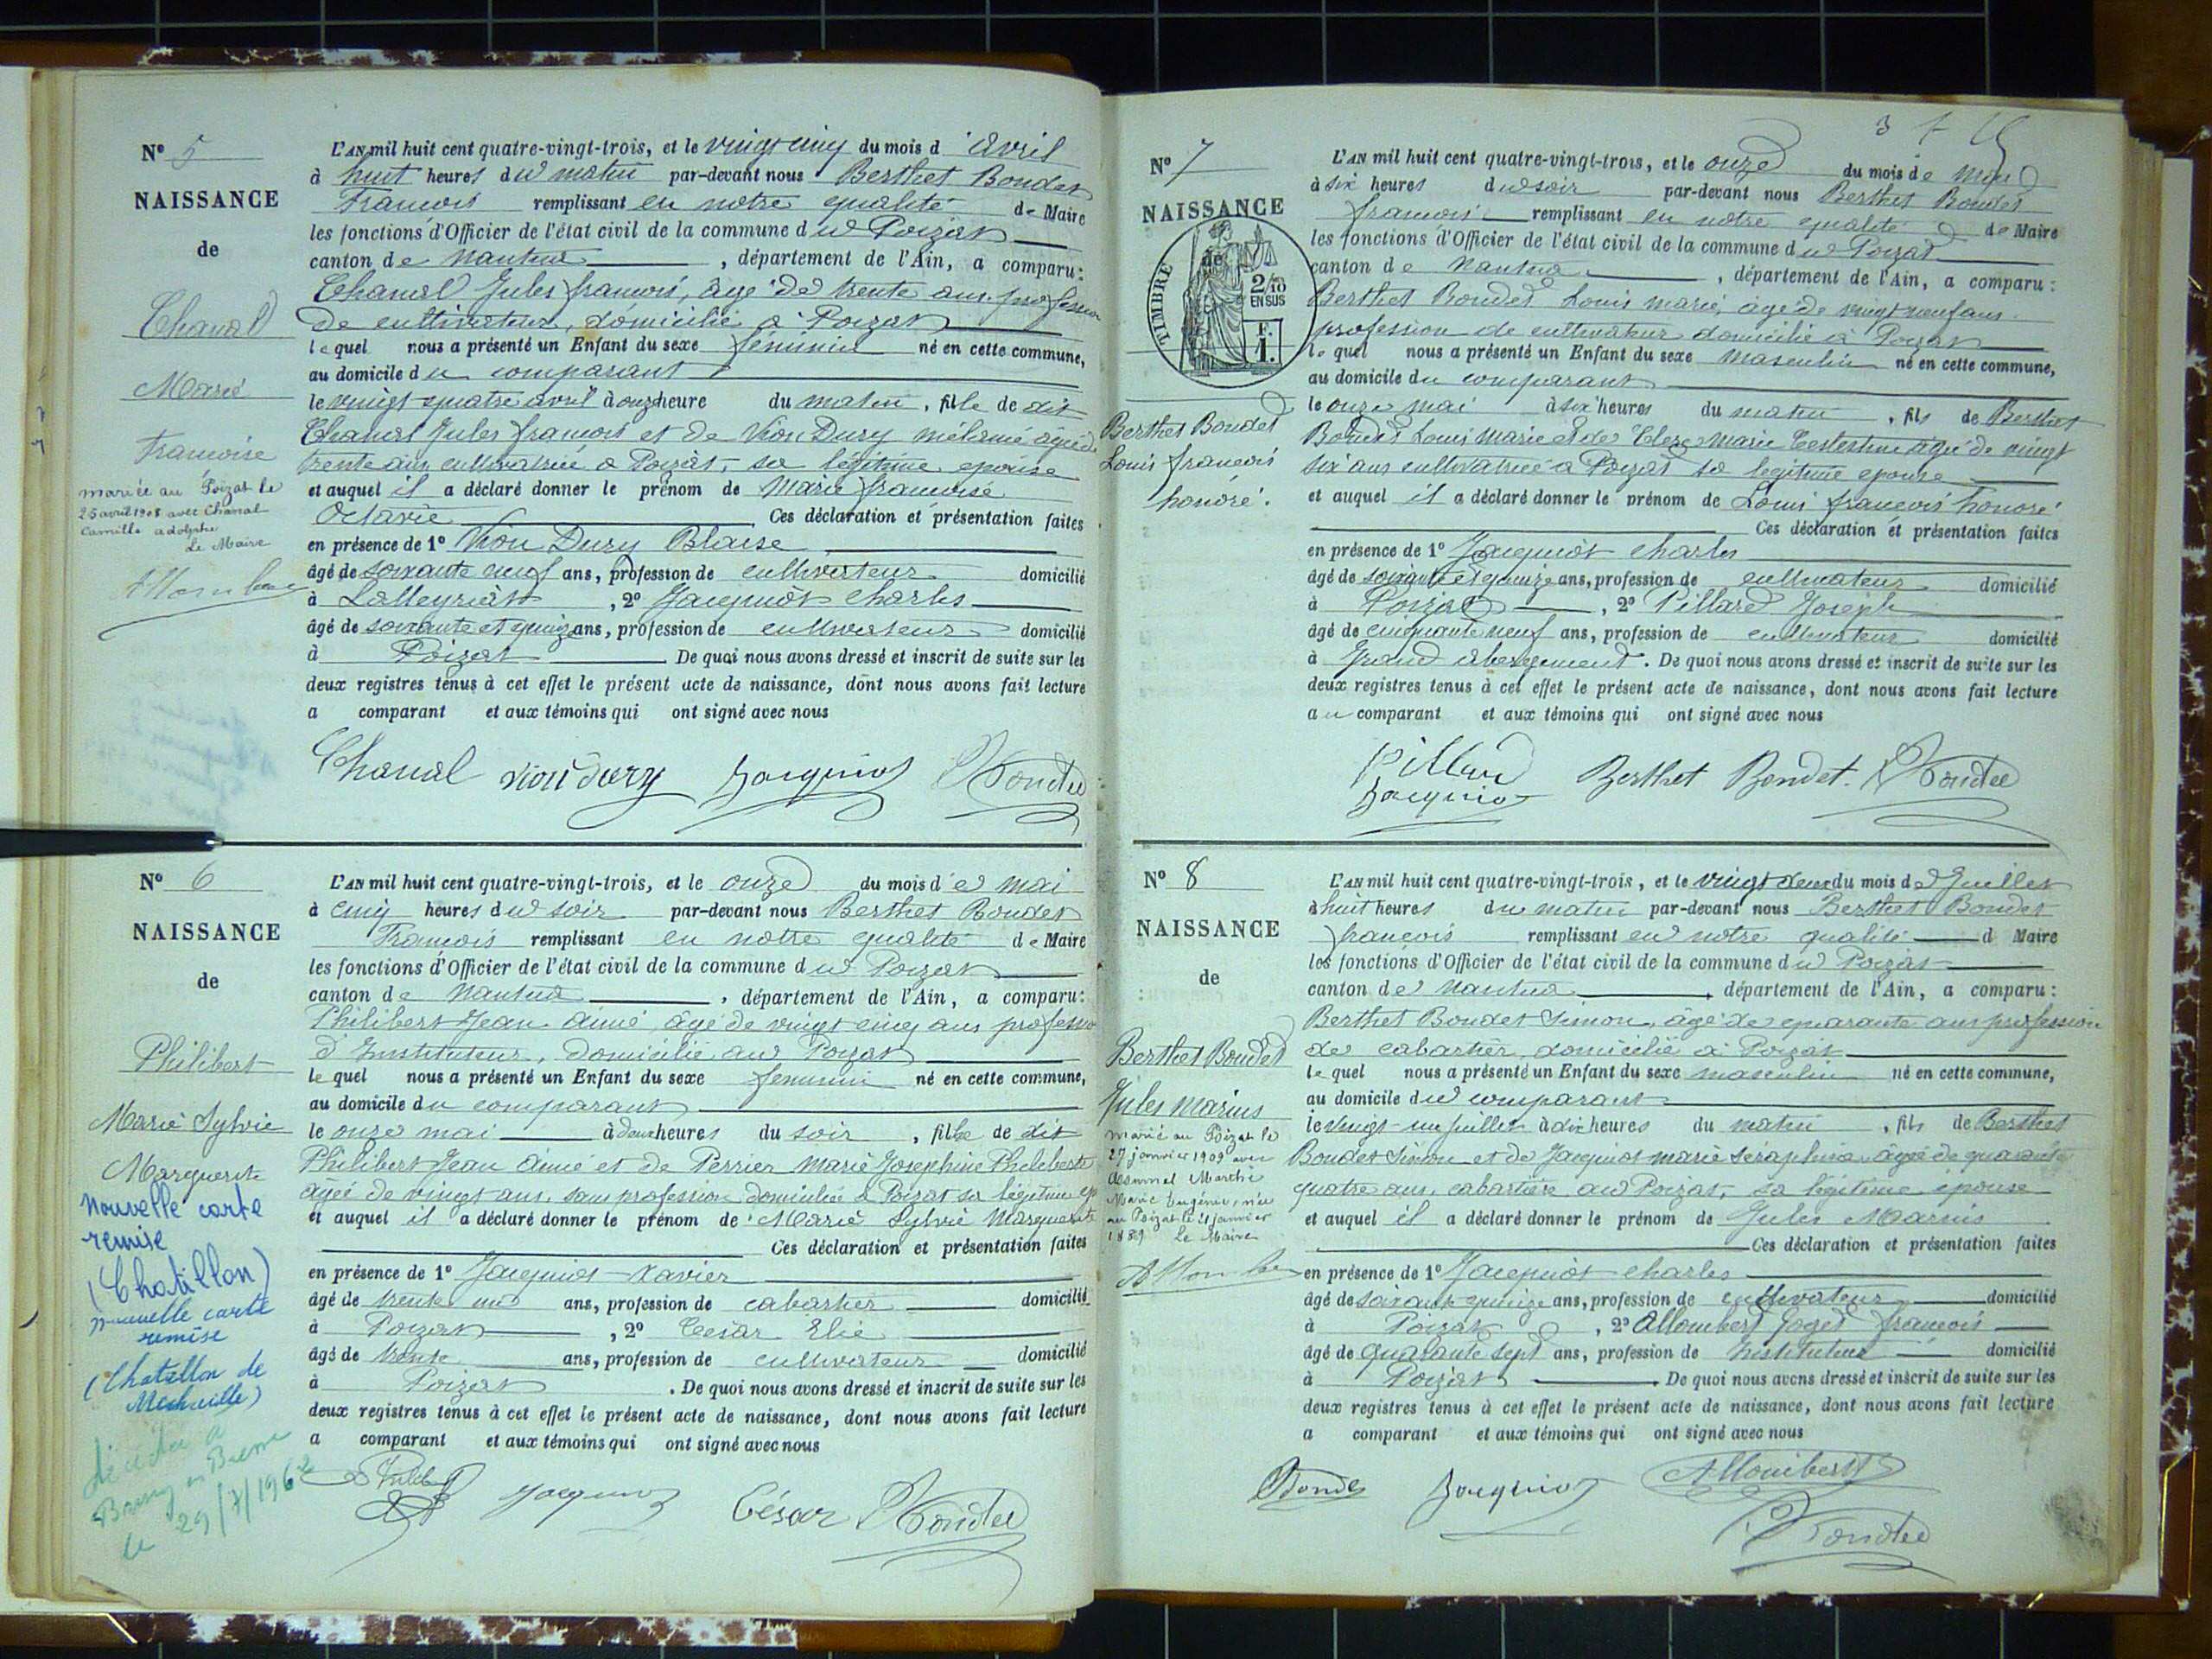 N° 5
NAISSANCE
de
Chanal
Marie
Francoise
mariée au Poizat le
25 avril 1908 avec Chanal
Camille adolphe
Le Maire
L'AN mil huit cent quatre-vingt-trois, et le vingt cinq du mois d'avril
à huit heures du matin par-devant nous Berthet Bondet
Francois remplissant en notre qualité de Maire
les fonctions d'Officier de l'état civil de la commune du Poizat
canton de Nantua, département de l'Ain, a comparu:
Chanal Jules francois, âgé de trente ans profession
de cultivateur, domicilié a Poizat
lequel nous a présenté un Enfant du sexe feminin né en cette commune,
au domicile du comparant
le vingt quatre avril à onze heure du matin, fille de dit
Chanal Jules francois et de Vion Dury mélanie agée de
trente ans cultivatrice a Poizat, sa légitime epouse
et auquel il a déclaré donner le prénom de Marie francoise
Octavie Ces déclaration et présentation faites
en présence de 1° Vion Dury Blaise
âgé de soixante neuf ans, profession de cultivateur domicilié
à Lalleyriat, 2° Jacquiot charles
âgé de soixante et quinze ans, profession de cultivateur domicilié
à Poizat De quoi nous avons dressé et inscrit de suite sur les
deux registres tenus à cet effet le présent acte de naissance, dont nous avons fait lecture
a comparant et aux témoins qui ont signé avec nous
Chanal Vion dury Jacquiot Bondet
N° 6
NAISSANCE
de
Philibert
Marie Sylvie
Marguerite
Nouvelle carte
remise
(Chatillon)
nouvelle carte
remise
(Chatillon de
Michaille)
décédée à
le 29/7/1962
L'AN mil huit cent quatre-vingt-trois, et le onze du mois de mai
à cinq heures du soir par-devant nous Berthet Bondet
Francois remplissant en notre qualité de Maire
les fonctions d'Officier de l'état civil de la commune du Poizat
canton de Nantua, département de l'Ain, a comparu:
Philibert Jean aimé, âgé de vingt cinq ans professio
d'Instituteur, domicilié au Poizat
lequel nous a présenté un Enfant du sexe feminin né en cette commune,
au domicile du comparant
le onze mai à deux heures du soir, fille de dit
Philibert Jean aimé et de Perrier Marie Josephine Philiberte
âgée de vingt ans, sans profession domiciliée a Poizat sa légitime ep
et auquel il a déclaré donner le prénom de Marie Sylvie Marguerite
Ces déclaration et présentation faites
en présence de 1° Jacquiot Xavier
âgé de trente un ans, profession de cabartier domicilié
à Poizat, 2° César Elie
âgé de trente ans, profession de cultivateur domicilié
à Poizat. De quoi nous avons dressé et inscrit de suite sur les
deux registres tenus à cet effet le présent acte de naissance, dont nous avons fait lecture
a comparant et aux témoins qui ont signé avec nous
Jacquiot César Bondet
N° 7
NAISSANCE
de
TIMBRE
2/10
EN SUS
F.
1.
Berthet Bondet
Louis francois
honoré.
L'AN mil huit cent quatre-vingt-trois, et le onze du mois de mai
à six heures du soir par-devant nous Berthet Bondet
francois remplissant en notre qualité de Maire
les fonctions d'Officier de l'état civil de la commune du Poizat
canton de Nantua, département de l'Ain, a comparu:
Berthet Bondet Louis marie, âgé de vingt neuf ans
profession de cultivateur domicilié a Poizat
lequel nous a présenté un Enfant du sexe masculin né en cette commune,
au domicile du comparant
le onze mai à six heures du matin, fils de Berthet
Bondet Louis Marie et de Marie Celestine agée de vingt
six ans cultivatrice a Poizat sa legitime epouse
et auquel il a déclaré donner le prénom de Louis francois honoré
Ces déclaration et présentation faites
en présence de 1° Jacquiot charles
âgé de soixante et quinze ans, profession de cultivateur domicilié
à Poizat, 2° Pillard Joseph
âgé de cinquante neuf ans, profession de cultivateur domicilié
à Grand abergement. De quoi nous avons dressé et inscrit de suite sur les
deux registres tenus à cet effet le présent acte de naissance, dont nous avons fait lecture
au comparant et aux témoins qui ont signé avec nous
Pillard Berthet Bondet. Bondet
Jacquiot
N° 8
NAISSANCE
de
Berthet Bondet
Jules Marius
marié au Poizat le
27 janvier 1909 avec
Marie Eugénie, née
au Poizat le 4 janvier
1889 Le Maire
L'AN mil huit cent quatre-vingt-trois, et le vingt deux du mois de Juillet
à huit heures du matin par-devant nous Berthet Bondet
francois remplissant en notre qualité d Maire
les fonctions d'Officier de l'état civil de la commune du Poizat
canton de Nantua, département de l'Ain, a comparu:
Berthet Bondet Simon, âgé de quarante ans profession
de cabartier domicilié à Poizat
lequel nous a présenté un Enfant du sexe masculin né en cette commune,
au domicile du comparant
le vingt-un juillet à dix heures du matin, fils de Berthet
Bondet Simon et de Jacquiot marie Séraphine âgée de quarante
quatre ans, cabartière au Poizat, sa légitime épouse
et auquel il a déclaré donner le prénom de Jules Marius
Ces déclaration et présentation faites
en présence de 1° Jacquiot charles
âgé de soixante quinze ans, profession de cultivateur domicilié
à Poizat, 2° Allombert francois
âgé de quarante sept ans, profession de instituteur domicilié
à Poizat De quoi nous avons dressé et inscrit de suite sur les
deux registres tenus à cet effet le présent acte de naissance, dont nous avons fait lecture
a comparant et aux témoins qui ont signé avec nous
Bondet Jacquiot Allombert
Bondet